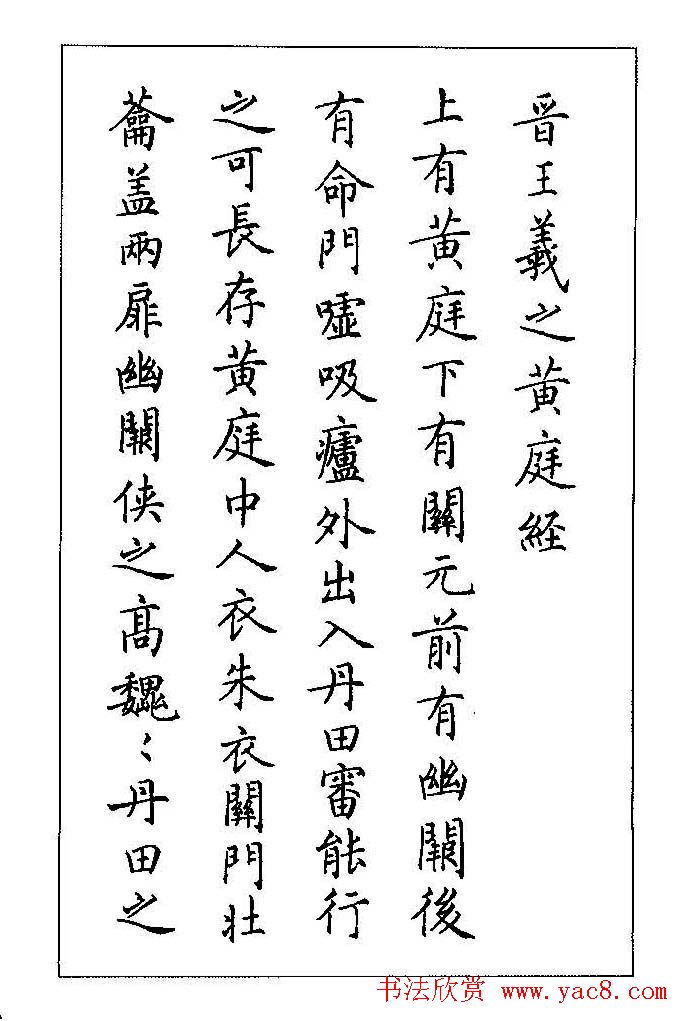 晉王羲之黄庭經
上有黄庭下有關元前有幽闕後
有命門嘘吸廬外出入丹田審能行
之可長存黄庭中人衣朱衣關門壮
蘥盖兩扉幽闕俠之髙魏〻丹田之
书法欣赏 www.yac8.com